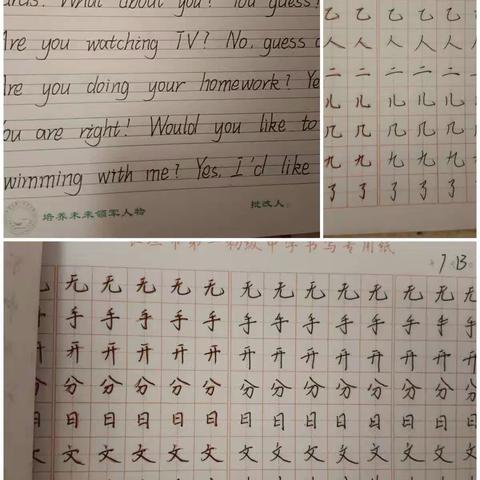 What about you? You guess!
Are you watching TV? No, guess
Are you doing your homework?
You are right! Would you like to
with me? Yes, I'd like
培养未来领军人物 批改人:
乙 乙 乙 乙 乙
人 人 人 人 人
二 二 二 二 二
儿 儿 儿 儿 儿
几 几 几 几 几
九 九 九 九 九
了 了 了 了 了
市第一初级中学书写专用纸
7.13
无 无 无 无 无 无 无 无 无 无 无 无
手 手 手 手 手 手 手 手 手 手 手 手
开 开 开 开 开 开 开 开 开 开 开 开
分 分 分 分 分 分 分 分 分 分 分 分
日 日 日 日 日 日 日 日 日 日 日 日
文 文 文 文 文 文 文 文 文 文 文 文